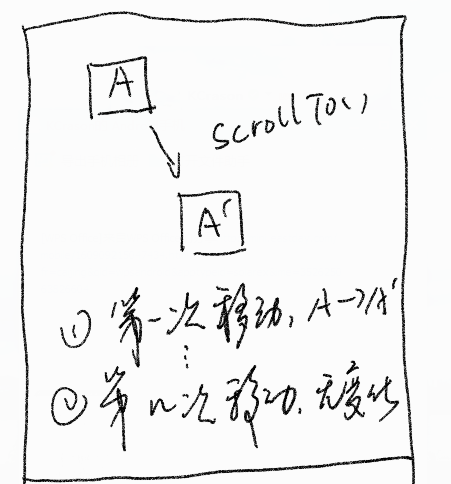 A
scrollTo()
A'
① 第一次移动, A→A'
⋮
② 第n次移动, 无变化